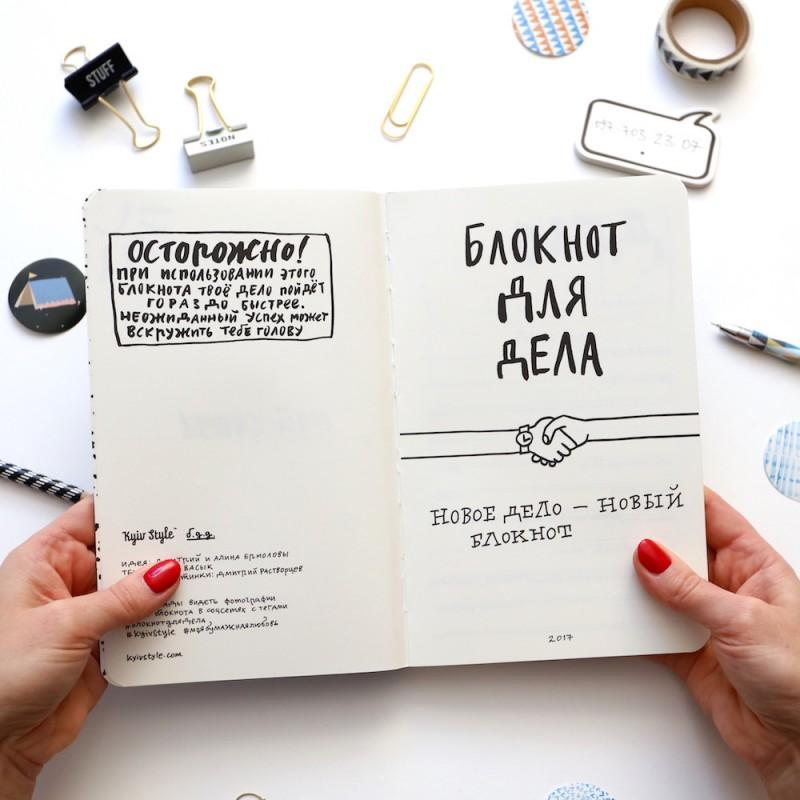 STUFF
NOTES
097 703 23 07
ОСТОРОЖНО!
ПРИ ИСПОЛЬЗОВАНИИ ЭТОГО
БЛОКНОТА ТВОЁ ДЕЛО ПОЙДЁТ
ГОРАЗДО БЫСТРЕЕ.
НЕОЖИДАННЫЙ УСПЕХ МОЖЕТ
ВСКРУЖИТЬ ТЕБЕ ГОЛОВУ
Kyiv Style™ б.д.д.
ИДЕЯ: ДМИТРИЙ И АЛИНА ЕРМОЛОВЫ
ВАСЫК
ДМИТРИЙ РАСТВОРЦЕВ
ВИДЕТЬ ФОТОГРАФИИ
БЛОКНОТА В СОЦСЕТЯХ С ТЕГАМИ
#БЛОКНОТДЛЯДЕЛА,
#KyivStyle #МОЯБУМАЖНАЯЛЮБОВЬ
kyivstyle.com
БЛОКНОТ
ДЛЯ
ДЕЛА
НОВОЕ ДЕЛО – НОВЫЙ
БЛОКНОТ
2017